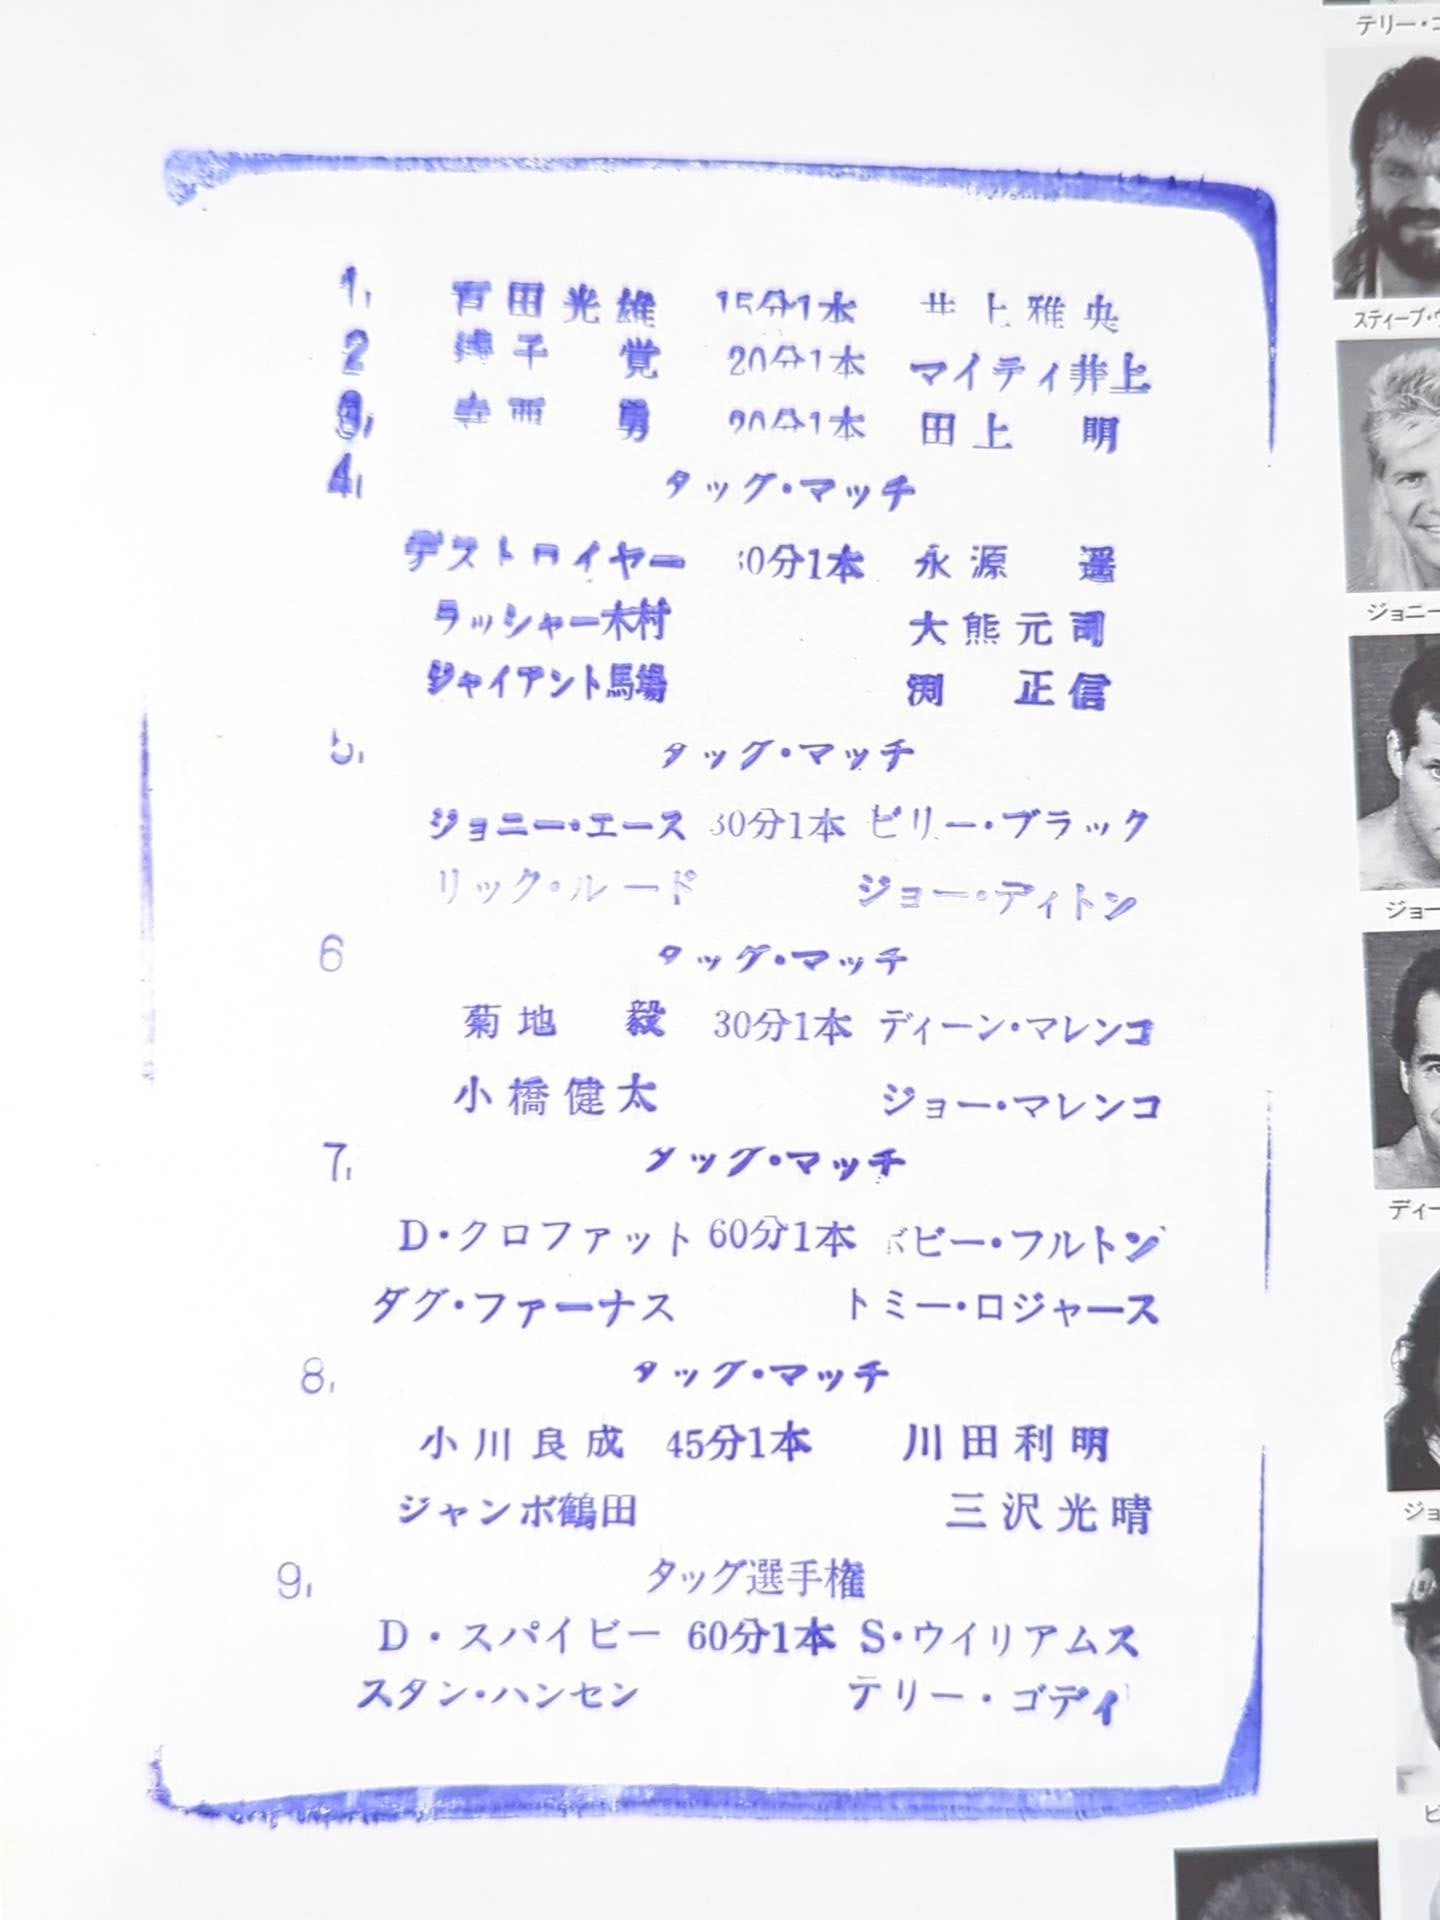 1, 百田光雄 15分1本 井上雅央
2 椿子 覚 20分1本 マイティ井上
3, 寺西 勇 20分1本 田上 明
4, タッグ・マッチ
デストロイヤー 30分1本 永源 遥
ラッシャー木村 大熊元司
ジャイアント馬場 渕 正信
5, タッグ・マッチ
ジョニー・エース 30分1本 ビリー・ブラック
リック・ルード ジョー・ディトン
6 タッグ・マッチ
菊地 毅 30分1本 ディーン・マレンコ
小橋健太 ジョー・マレンコ
7, タッグ・マッチ
D・クロファット 60分1本 ボビー・フルトン
ダグ・ファーナス トミー・ロジャース
8, タッグ・マッチ
小川良成 45分1本 川田利明
ジャンボ鶴田 三沢光晴
9, タッグ選手権
D・スパイビー 60分1本 S・ウイリアムス
スタン・ハンセン テリー・ゴディ
テリー・
スティーブ・
ジョニー
ジョー
ディー
ジョ